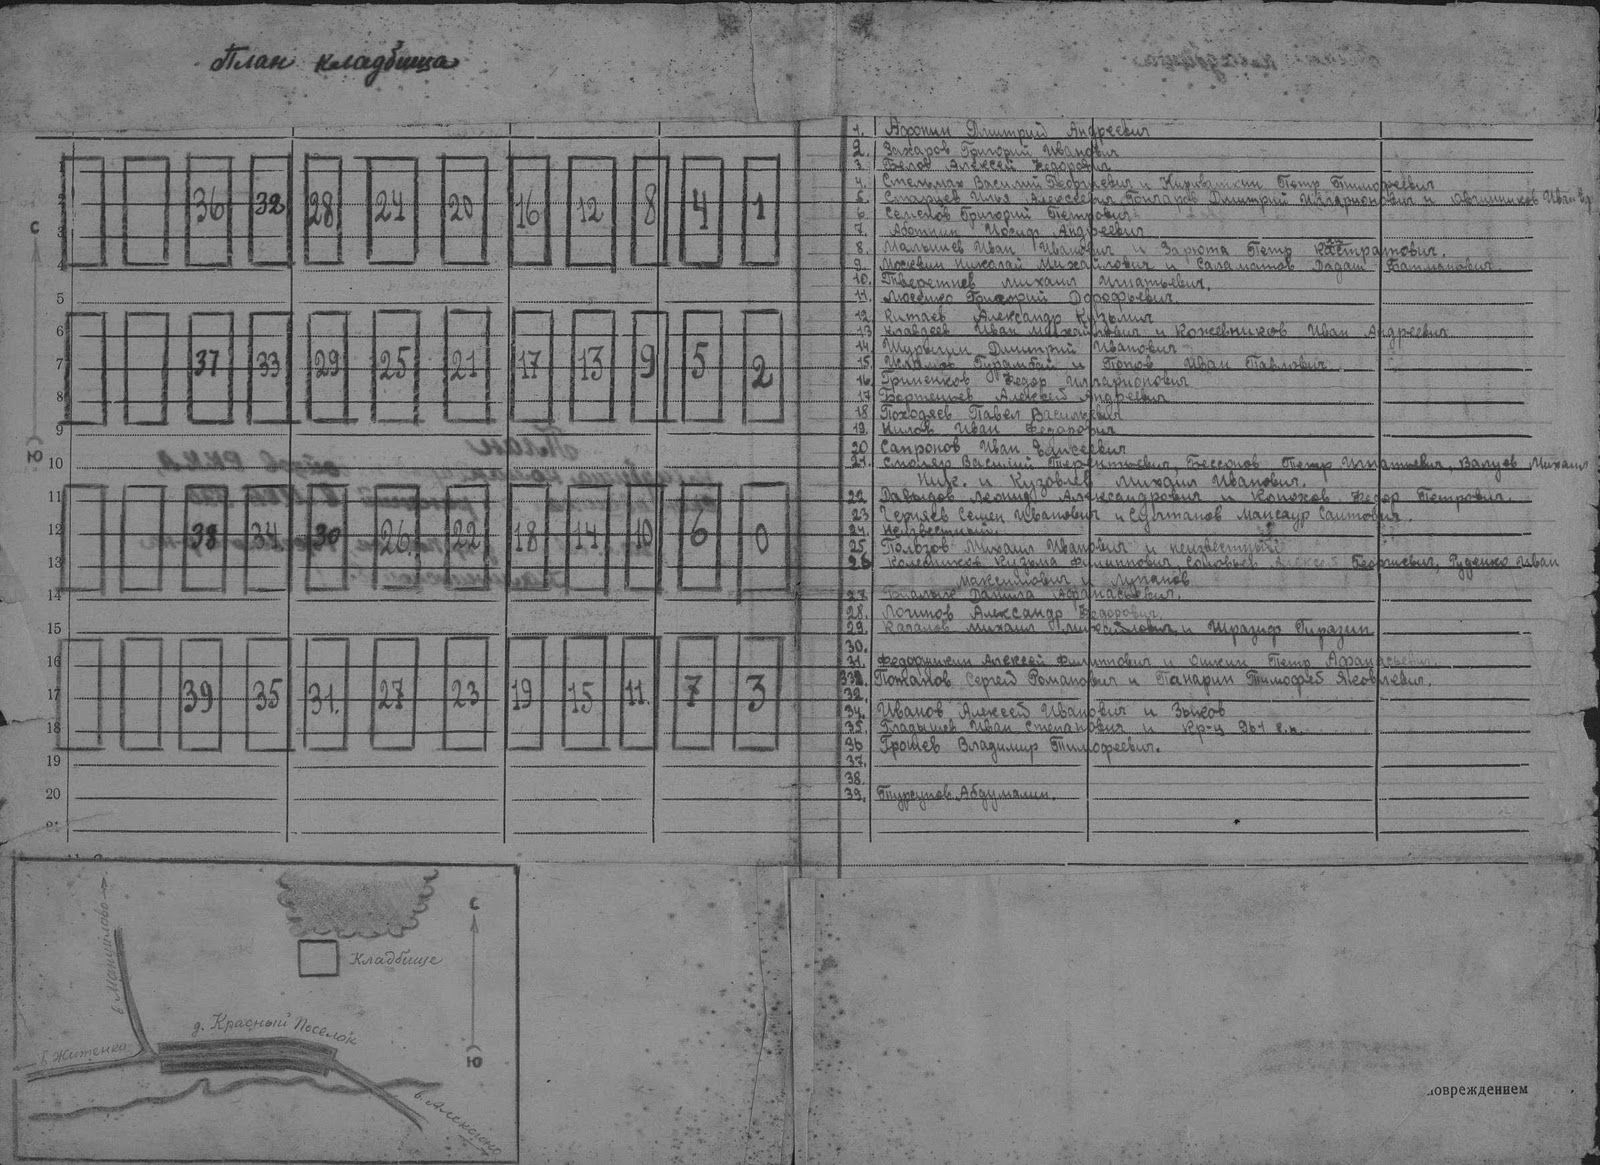 План кладбища
С
Ю
36 32 28 24 20 16 12 8 4 1
37 33 29 25 21 17 13 9 5 2
38 34 30 26 22 18 14 10 6 0
39 35 31. 27 23 19 15 11. 7 3
1
2
3
4
5
6
7
8
9
10
11
12
13
14
15
16
17
18
19
20
21
1. Афонин Дмитрий Андреевич
2. Захаров Григорий Иванович
3. Белов Алексей Федорович
4. Стельмах Василий Георгиевич и Петр Тимофеевич
5. Старцев Илья Алексеевич Гончаров Дмитрий Илларионович и Овчинников Иван
6. Семенов Григорий Петрович
7. Иосиф Андреевич
8. Малышев Иван Иванович и Зарюта Петр
9. Москвин Николай Михайлович и Саламатов
10. Михаил Игнатьевич.
11. Григорий Дорофьевич.
12 Китаев Александр Кузьмич
13 Иван Михайлович и Кожевников Иван Андреевич
14 Шурыгин Дмитрий Иванович
15. Исламов и Попов Иван Павлович.
16. Гриненков Федор Илларионович
17 Алексей Андреевич
18 Походяев Павел Васильевич
19. Нилов Иван Федорович
20 Сапронов Иван Елисеевич
21. Смоляр Василий Терентьевич, Бессонов Петр Игнатьевич, Валуев Михаил
Ник. и Кузовлев Михаил Иванович.
22 Давыдов Леонид Александрович и Конохов Федор Петрович.
23 Черняев Семен Иванович и Султанов Мансур Саитович.
24. Неизвестный.
25. Полозов Михаил Иванович и неизвестный
26 Колесников Кузьма Филиппович, Соловьев Алексей Георгиевич, Руденко Иван
Максимович и Лупанов
27. Данила Афанасьевич.
28. Логинов Александр Федорович.
29. Каганов Михаил Михайлович и
30.
31. Алексей Филиппович и Ошкин Петр Афанасьевич.
Сергей Романович и Панарин Тимофей Яковлевич.
34. Иванов Алексей Иванович и Зыков
35. Гладышев Иван Степанович и кр-ц 961 с.п.
36 Грошев Владимир Тимофеевич.
37.
38.
39. Турсунов Абдумалик.
Кладбище
С
Ю
в Манишлово
д. Красный Поселок
в Житенки
в Алексино
повреждением